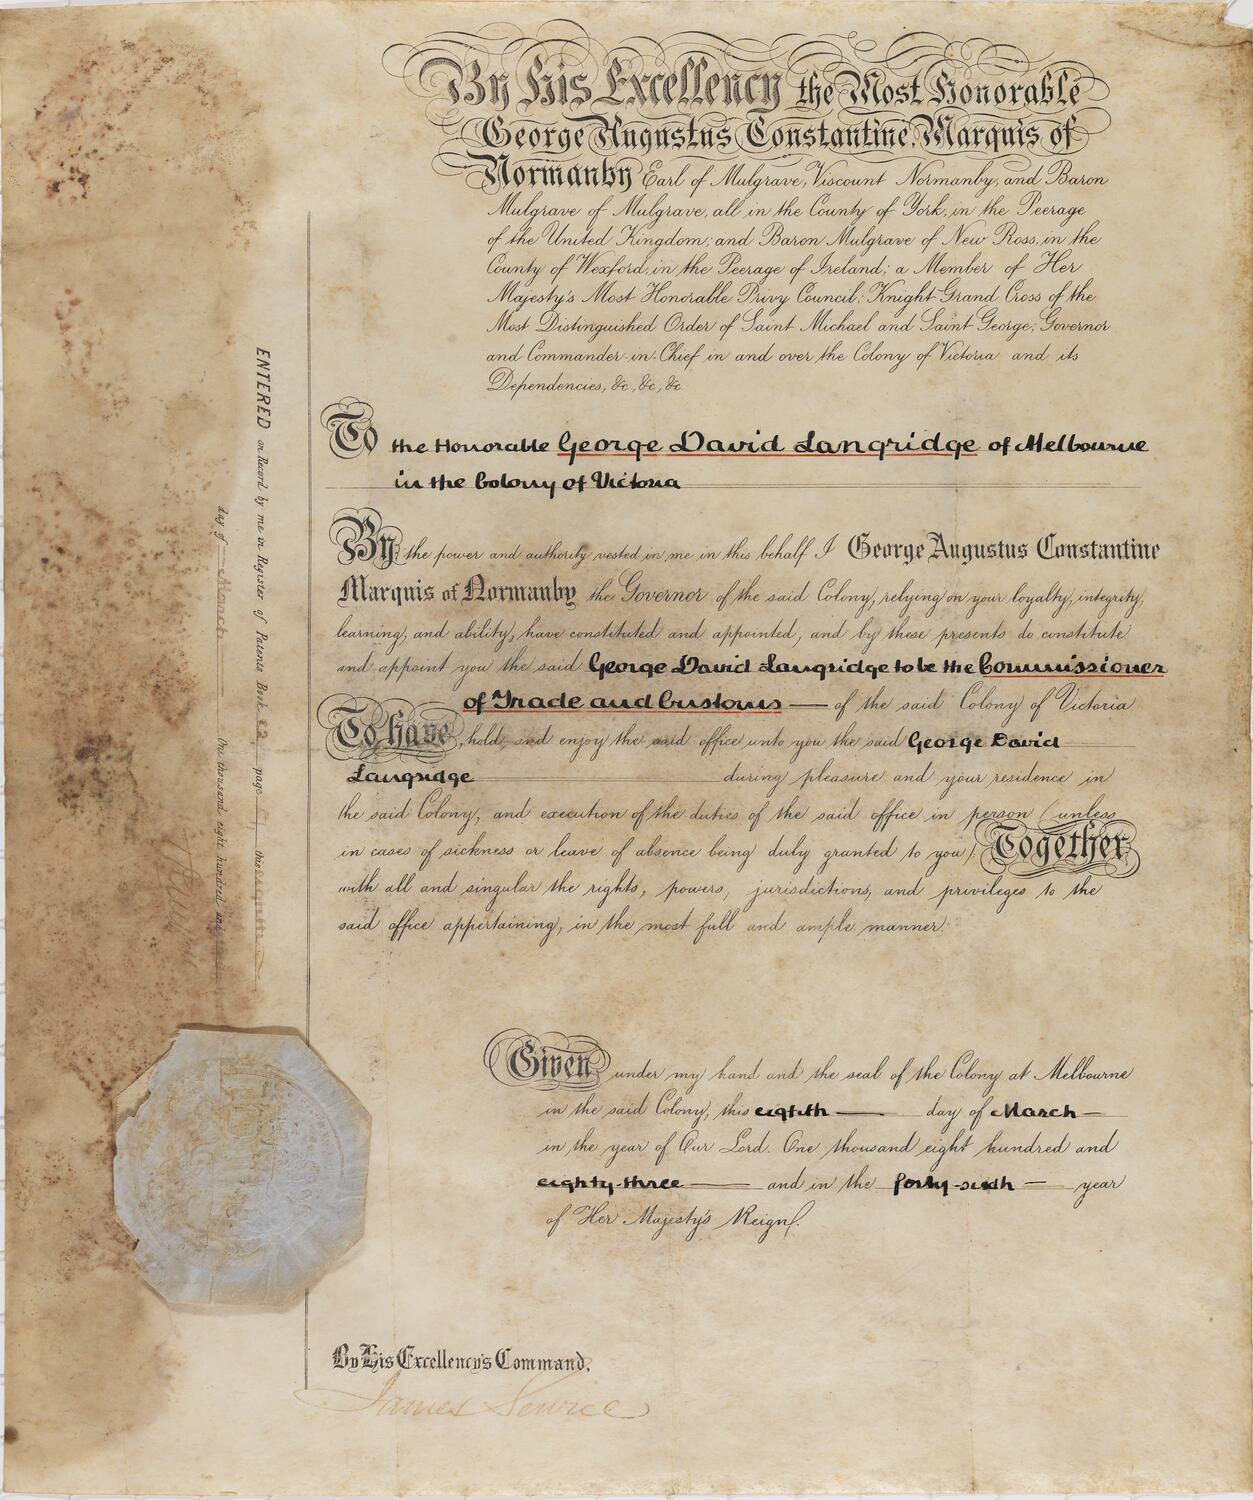 By His Excellency the Most Honorable
George Augustus Constantine, Marquis of
Normanby Earl of Mulgrave, Viscount Normanby, and Baron
Mulgrave of Mulgrave, all in the County of York, in the Peerage
of the United Kingdom; and Baron Mulgrave of New Ross, in the
County of Wexford, in the Peerage of Ireland; a Member of Her
Majesty's Most Honorable Privy Council; Knight Grand Cross of the
Most Distinguished Order of Saint Michael and Saint George; Governor
and Commander-in-Chief in and over the Colony of Victoria and its
Dependencies, &c, &c, &c.
To the Honorable George David Langridge of Melbourne
in the Colony of Victoria
By the power and authority vested in me in this behalf I George Augustus Constantine
Marquis of Normanby the Governor of the said Colony, relying on your loyalty, integrity,
learning, and ability, have constituted and appointed, and by these presents do constitute
and appoint you the said George David Langridge to be the Commissioner
of Trade and Customs — of the said Colony of Victoria
To have, hold, and enjoy the said office unto you the said George David
Langridge during pleasure and your residence in
the said Colony, and execution of the duties of the said office in person (unless
in cases of sickness or leave of absence being duly granted to you). Together
with all and singular the rights, powers, jurisdictions, and privileges to the
said office appertaining, in the most full and ample manner.
Given under my hand and the seal of the Colony at Melbourne
in the said Colony, this eighth — day of March —
in the year of Our Lord One thousand eight hundred and
eighty-three — and in the forty-sixth — year
of Her Majesty's Reign.
By His Excellency's Command,
James Service
ENTERED on Record by me in Register of Patents Book 22 page this
day of March One thousand eight hundred and